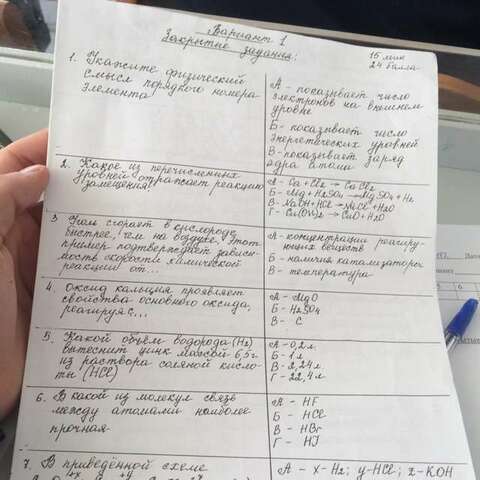 Вариант 1
Закрытые задания:
15 мин
24 балла
1. Укажите физический
смысл порядкого номера
элемента
А - показывает число
электронов на внешнем
уровне
Б - показывает число
энергетических уровней
В - показывает заряд
ядра атома
2. Какое из перечисленных
уровней отражает реакцию
замещения?
А - Ca + Cl₂ → CaCl₂
Б - Mg + H₂SO₄ → MgSO₄ + H₂
В - NaOH + HCl → NaCl + H₂O
Г - Cu(OH)₂ → CuO + H₂O
3. сгорает в кислороде
быстрее, чем на воздухе. Этот
пример подтверждает зависи-
мость скорости химической
реакции от...
А - концентрации реагиру-
ющих веществ
Б - наличия катализатора
В - температура
4. Оксид кальция проявляет
свойства основного оксида,
реагируя с...
А - MgO
Б - H₂SO₄
В - C
5. Какой объём водорода (H₂)
вытеснит цинк массой 6,5 г
из раствора соляной кисло-
ты (HCl)
А - 0,2 л
Б - 1 л
В - 2,24 л
Г - 22,4 л
6. В какой из молекул связь
между атомами наиболее
прочная
А - HF
Б - HCl
В - HBr
Г - HJ
7. В приведённой схеме
А - x-H₂; y-HCl; z-KOH